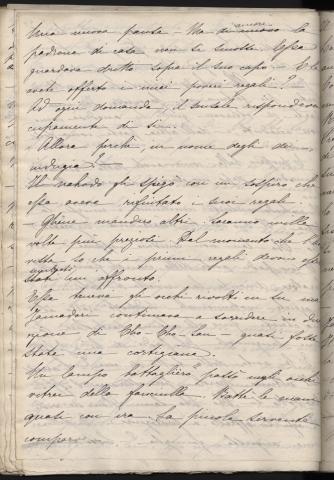 Una nuova pausa – Ma ancora la
padrona di casa non si mosse. Essa
guardava dritto sopra il suo capo – E le
avete offerto i miei poveri regali?
Ad ogni domanda, il sensale rispondeva
cupamente di sì.
Allora perchè, in nome degli dei
indugia? –
Il nakodo gli spiegò con un sospiro che
essa aveva rifiutato i suoi regali.
Gliene manderò altri. Saranno mille
volte più preziosi. Dal momento che l'ho
vista lo che i primi regali devono
state un affronto.
Essa teneva gli occhi rivolti in su ma
Yamadori continuava a sorridere in
di Cho-Cho-San – quasi fosse
stata una cortigiana.
Un lampo battagliero passò negli occhi
della fanciulla. Battè le mani
quasi con ira. La piccola servente
comparve.